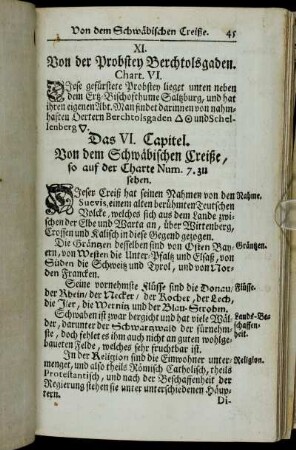 Von dem Schwäbischen Creiße. 45
XI.
Von der Probstey Berchtolsgaden.
Chart. VI.
Diese gefürstete Probstey lieget unten neben
dem Ertz-Bischoffthum Saltzburg, und hat
ihren eigenen Abt. Man findet darinnen von nahm-
hafften Oertern Berchtolsgaden △⊙ und Schel-
lenberg ▽.
Das VI. Capitel.
Von dem Schwäbischen Creiße,
so auf der Charte Num. 7. zu
sehen.
Dieser Creiß hat seinen Nahmen von den Nahme.
Suevis, einem alten berühmten Teutschen
Volcke, welches sich aus dem Lande zwi-
schen der Elbe und Warta an, über Wittenberg,
Crossen und Kalisch in diese Gegend gezogen.
Die Gräntzen desselben sind von Osten Bay- Gräntzen.
ern, von Westen die Unter-Pfaltz und Elsaß, von
Süden die Schweitz und Tyrol, und von Nor-
den Francken.
Seine vornehmste Flüsse sind die Donau/ Flüsse.
der Rhein/ der Necker/ der Kocher, der Lech,
die Jler, die Wernitz und der Blau-Strohm.
Schwaben ist zwar bergicht und hat viele Wäl- Landes-Be-
der, darunter der Schwartzwald der fürnehm- schaffen-
ste, doch fehlet es ihm auch nicht an guten wohlge- heit.
baueten Felde, welches sehr fruchtbar ist.
In der Religion sind die Einwohner unter- Religion.
menget, und also theils Römisch Catholisch, theils
Protestantisch, und nach der Beschaffenheit der
Regierung stehen sie unter unterschiedenen Häup-
tern.
Di-